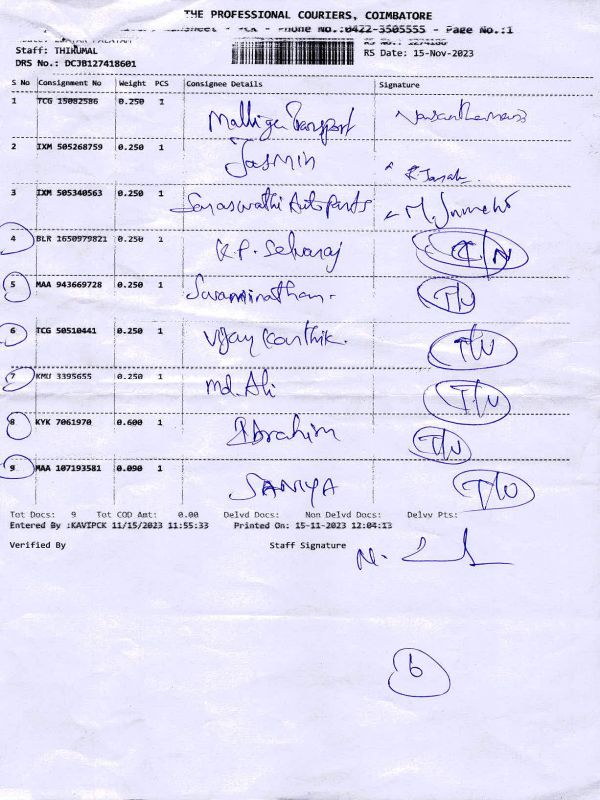 THE PROFESSIONAL COURIERS, COIMBATORE
PCK - Phone No.:0422-3505555 - Page No.:1
Staff: THIKUMAL
RS Date: 15-Nov-2023
DRS No.: DCJB127418601
S No Consignment No Weight PCS Consignee Details Signature
1 TCG 15082586 0.250 1 Malliga Transport
2 IXM 505268759 0.250 1 Jasmin
3 IXM 505340563 0.250 1 Saraswathi Auto parts
4 BLR 1650979821 0.250 1 K.P. Selvaraj
5 MAA 943669728 0.250 1 Swaminathan.
6 TCG 50510441 0.250 1 Vijay Karthik.
7 KMU 3395655 0.250 1 md. Ali
8 KYK 7061970 0.600 1 Ibrahim
9 MAA 107193581 0.090 1 SANIYA
Tot Docs: 9 Tot COD Amt: 0.00 Delvd Docs: Non Delvd Docs: Delvy Pts:
Entered By :KAVIPCK 11/15/2023 11:55:33 Printed On: 15-11-2023 12:04:13
Verified By Staff Signature
6